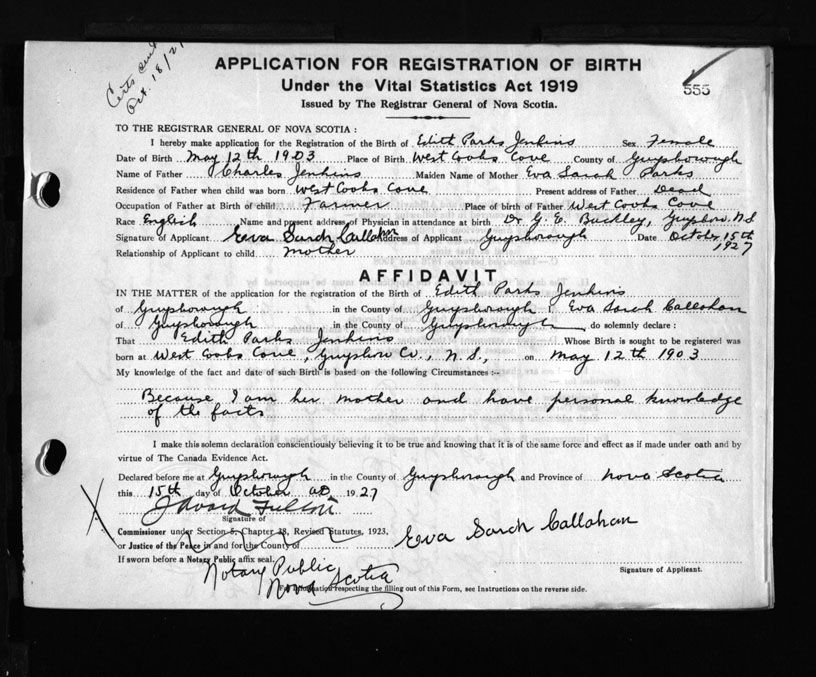 Certs sent
Oct. 18/27
APPLICATION FOR REGISTRATION OF BIRTH
555
Under the Vital Statistics Act 1919
Issued by The Registrar General of Nova Scotia.
TO THE REGISTRAR GENERAL OF NOVA SCOTIA :
I hereby make application for the Registration of the Birth of Edith Parks Jenkins Sex Female
Date of Birth May 12th 1903 Place of Birth West Cooks Cove County of Guysborough
Name of Father Charles Jenkins Maiden Name of Mother Eva Sarah Parks
Residence of Father when child was born West Cooks Cove Present address of Father Dead
Occupation of Father at Birth of child Farmer Place of birth of Father West Cooks Cove
Race English Name and present address of Physician in attendance at birth Dr G. E. Buckley, Guysboro. N.S
Signature of Applicant Eva Sarah Callahan Address of Applicant Guysborough Date October 15th 1927
Relationship of Applicant to child mother
AFFIDAVIT
IN THE MATTER of the application for the registration of the Birth of Edith Parks Jenkins
of Guysborough in the County of Guysborough I Eva Sarah Callahan
of Guysborough in the County of Guysborough do solemnly declare :
That Edith Parks Jenkins Whose Birth is sought to be registered was
born at West Cooks Cove, Guysboro Co., N. S., on May 12th 1903
My knowledge of the fact and date of such Birth is based on the following Circumstances :-
Because I am her mother and have personal knowledge
of the facts
I make this solemn declaration conscientiously believing it to be true and knowing that it is of the same force and effect as if made under oath and by
virtue of The Canada Evidence Act.
Declared before me at Guysborough in the County of Guysborough and Province of Nova Scotia
this 15th day of October AD 1927
Signature of
Commissioner under Section 5, Chapter 38, Revised Statutes, 1923,
or Justice of the Peace in and for the County of
Eva Sarah Callahan
If sworn before a Notary Public affix seal.
Signature of Applicant.
Notary Public
Nova Scotia
For Information respecting the filling out of this Form, see Instructions on the reverse side.